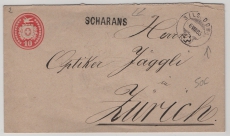 SCHARANS
10
Herrn
Optiker Jäggli
Zürich